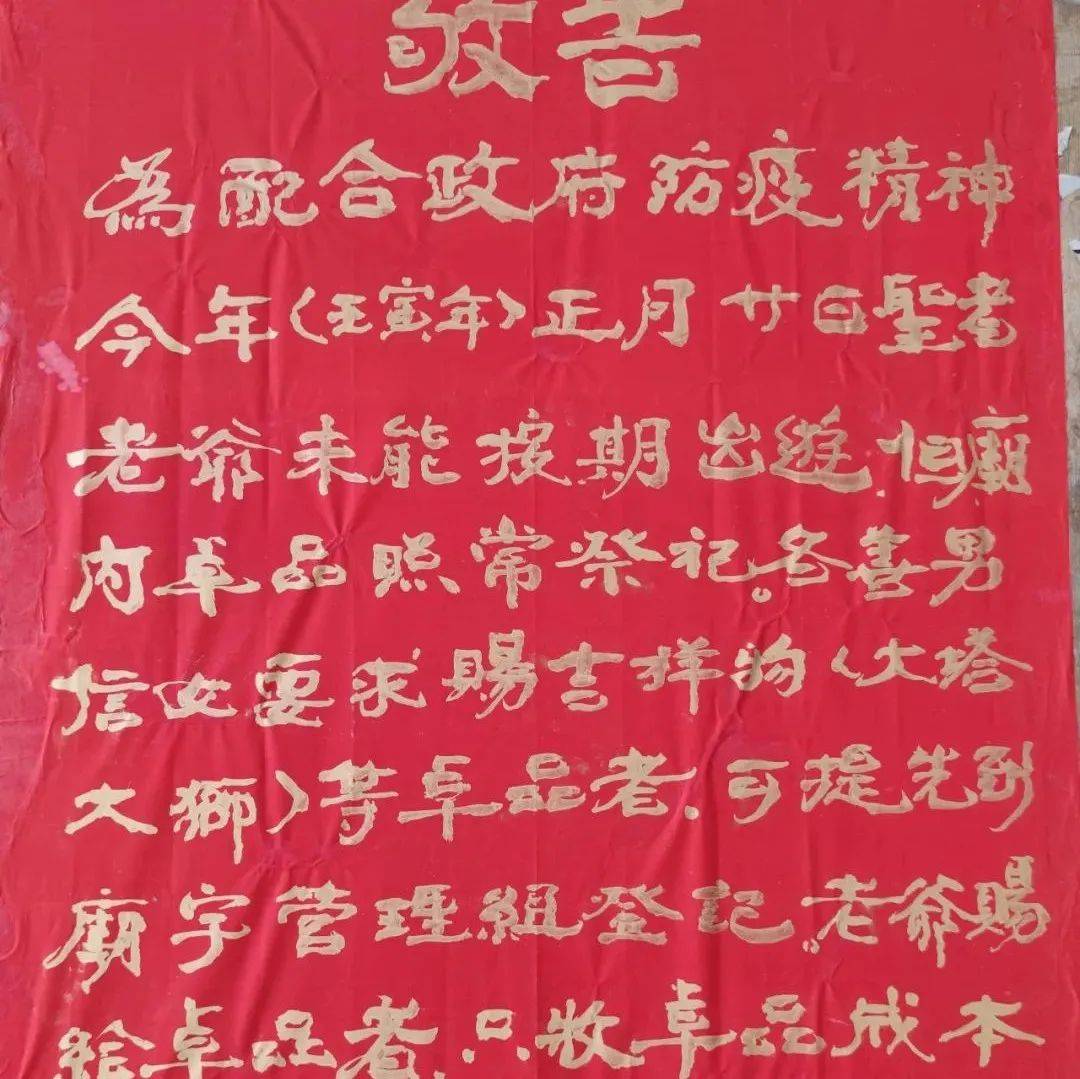 敬告
為配合政府防疫精神
今年(壬寅年)正月廿日聖者
老爺未能按期出遊.但廟
内卓品照常祭祀。各善男
信女要求賜吉祥物(大塔
大獅)等卓品者.可提先到
廟宇管理組登記。老爺賜
給卓品者.只收卓品成本